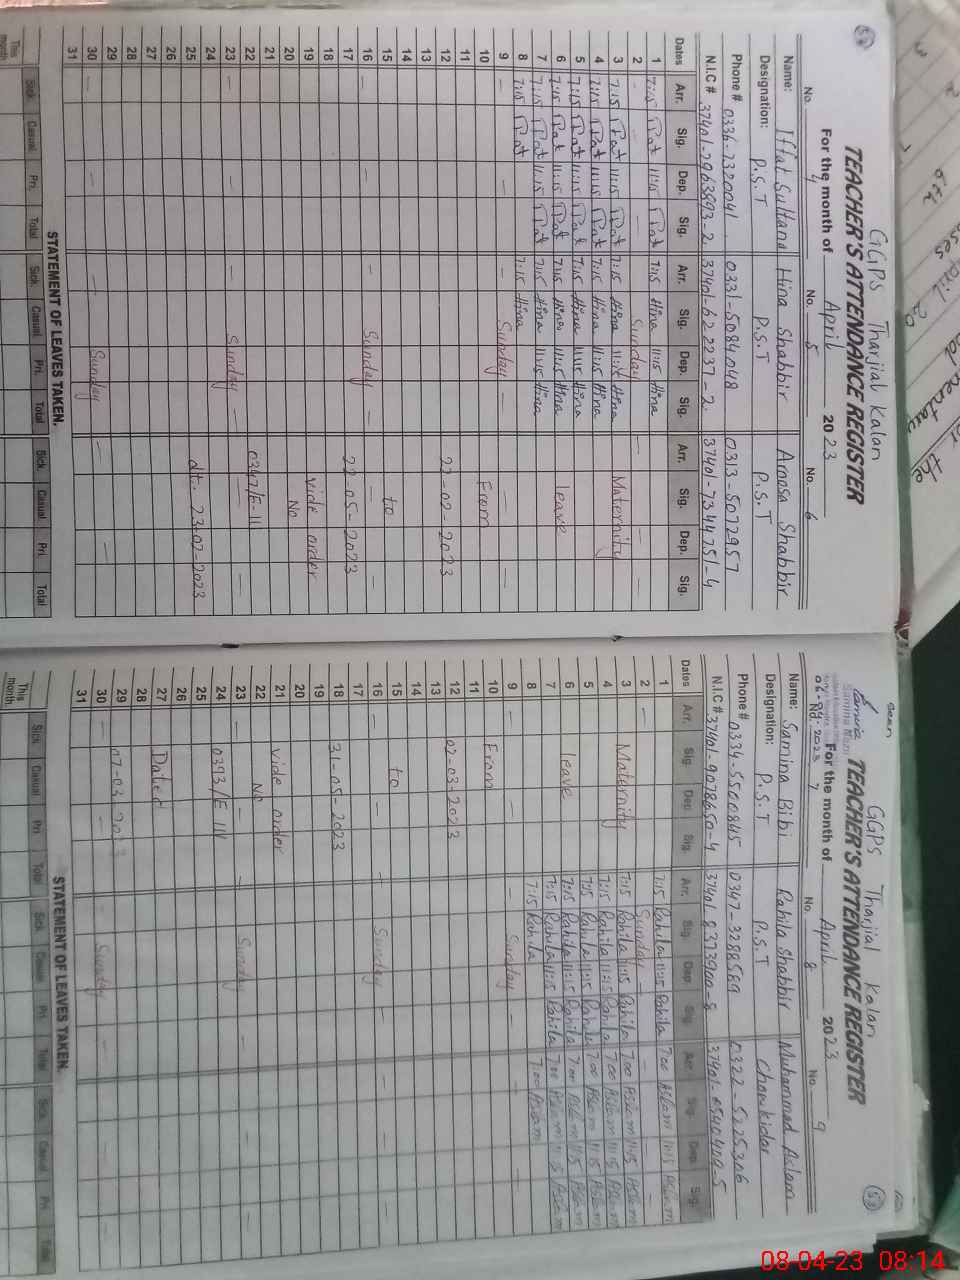 GGPS Tharjial Kalan
TEACHER'S ATTENDANCE REGISTER
For the month of April 2023
No. 4 No. 5 No. 6
Name: Iffat Sultana Hina Shabbir Aroosa Shabbir
Designation: P.S.T P.S.T P.S.T
Phone # 0336-7320041 0331-5084048 0313-5072957
N.I.C # 37401-2963993-2 37401-622237-2 37401-7344751-4
Dates Arr. Sig. Dep. Sig. Arr. Sig. Dep. Sig. Arr. Sig. Dep. Sig.
1 7:15 11:15 7:15 Hina 11:15 Hina
2 Sunday
3 7:15 11:15 7:15 Hina 11:15 Hina Maternity
4 7:15 11:15 7:15 Hina 11:15 Hina
5 7:15 11:15 7:15 Hina 11:15 Hina
6 7:15 11:15 7:15 Hina 11:15 Hina leave
7 7:15 11:15 7:15 Hina 11:15 Hina
8 7:15 7:15 Hina
9 Sunday
10 From
11
12 22-02-2023
13
14
15 to
16 Sunday
17 22-05-2023
18
19 vide order
20 No
21
22 0347/E-III
23 Sunday
24
25 dt. 23-02-2023
26
27
28
29
30 Sunday
31
STATEMENT OF LEAVES TAKEN.
Sick Casual Pri. Total Sick Casual Pri. Total Sick Casual Pri Total
This month
Seen
GGPS Tharjial Kalan
TEACHER'S ATTENDANCE REGISTER
For the month of April 2023
No. 7 No. 8 No. 9
Name: Samina Bibi Rahila Shabbir Muhammad Aslam
Designation: P.S.T P.S.T Chowkidar
Phone # 0334-5500845 0347-3288589 0322-5225306
N.I.C # 37401-9078650-4 37401-8373900-8 37401-0540409-5
Dates Arr. Sig. Dep. Sig. Arr. Sig. Dep. Sig. Arr. Sig. Dep. Sig.
1 7:15 Rahila 11:15 Rahila 7:00 Aslam 11:15 Aslam
2 Sunday
3 Maternity 7:15 Rahila 11:15 Rahila 7:00 Aslam 11:15 Aslam
4 7:15 Rahila 11:15 Rahila 7:00 Aslam 11:15 Aslam
5 7:15 Rahila 11:15 Rahila 7:00 Aslam 11:15 Aslam
6 leave 7:15 Rahila 11:15 Rahila 7:00 Aslam 11:15 Aslam
7 7:15 Rahila 11:15 Rahila 7:00 Aslam 11:15 Aslam
8 7:15 Rahila 7:00 Aslam
9 Sunday
10 From
11
12 02-03-2023
13
14
15 to
16 Sunday
17
18 31-05-2023
19
20
21 vide order
22 No
23 Sunday
24 0393/E-IIV
25
26
27 Dated
28
29 07-03-2023
30 Sunday
31
STATEMENT OF LEAVES TAKEN.
Sick Casual Pri Total Sick Casual Pri. Total Sick Casual Pri Total
This month
08-04-23 08:14